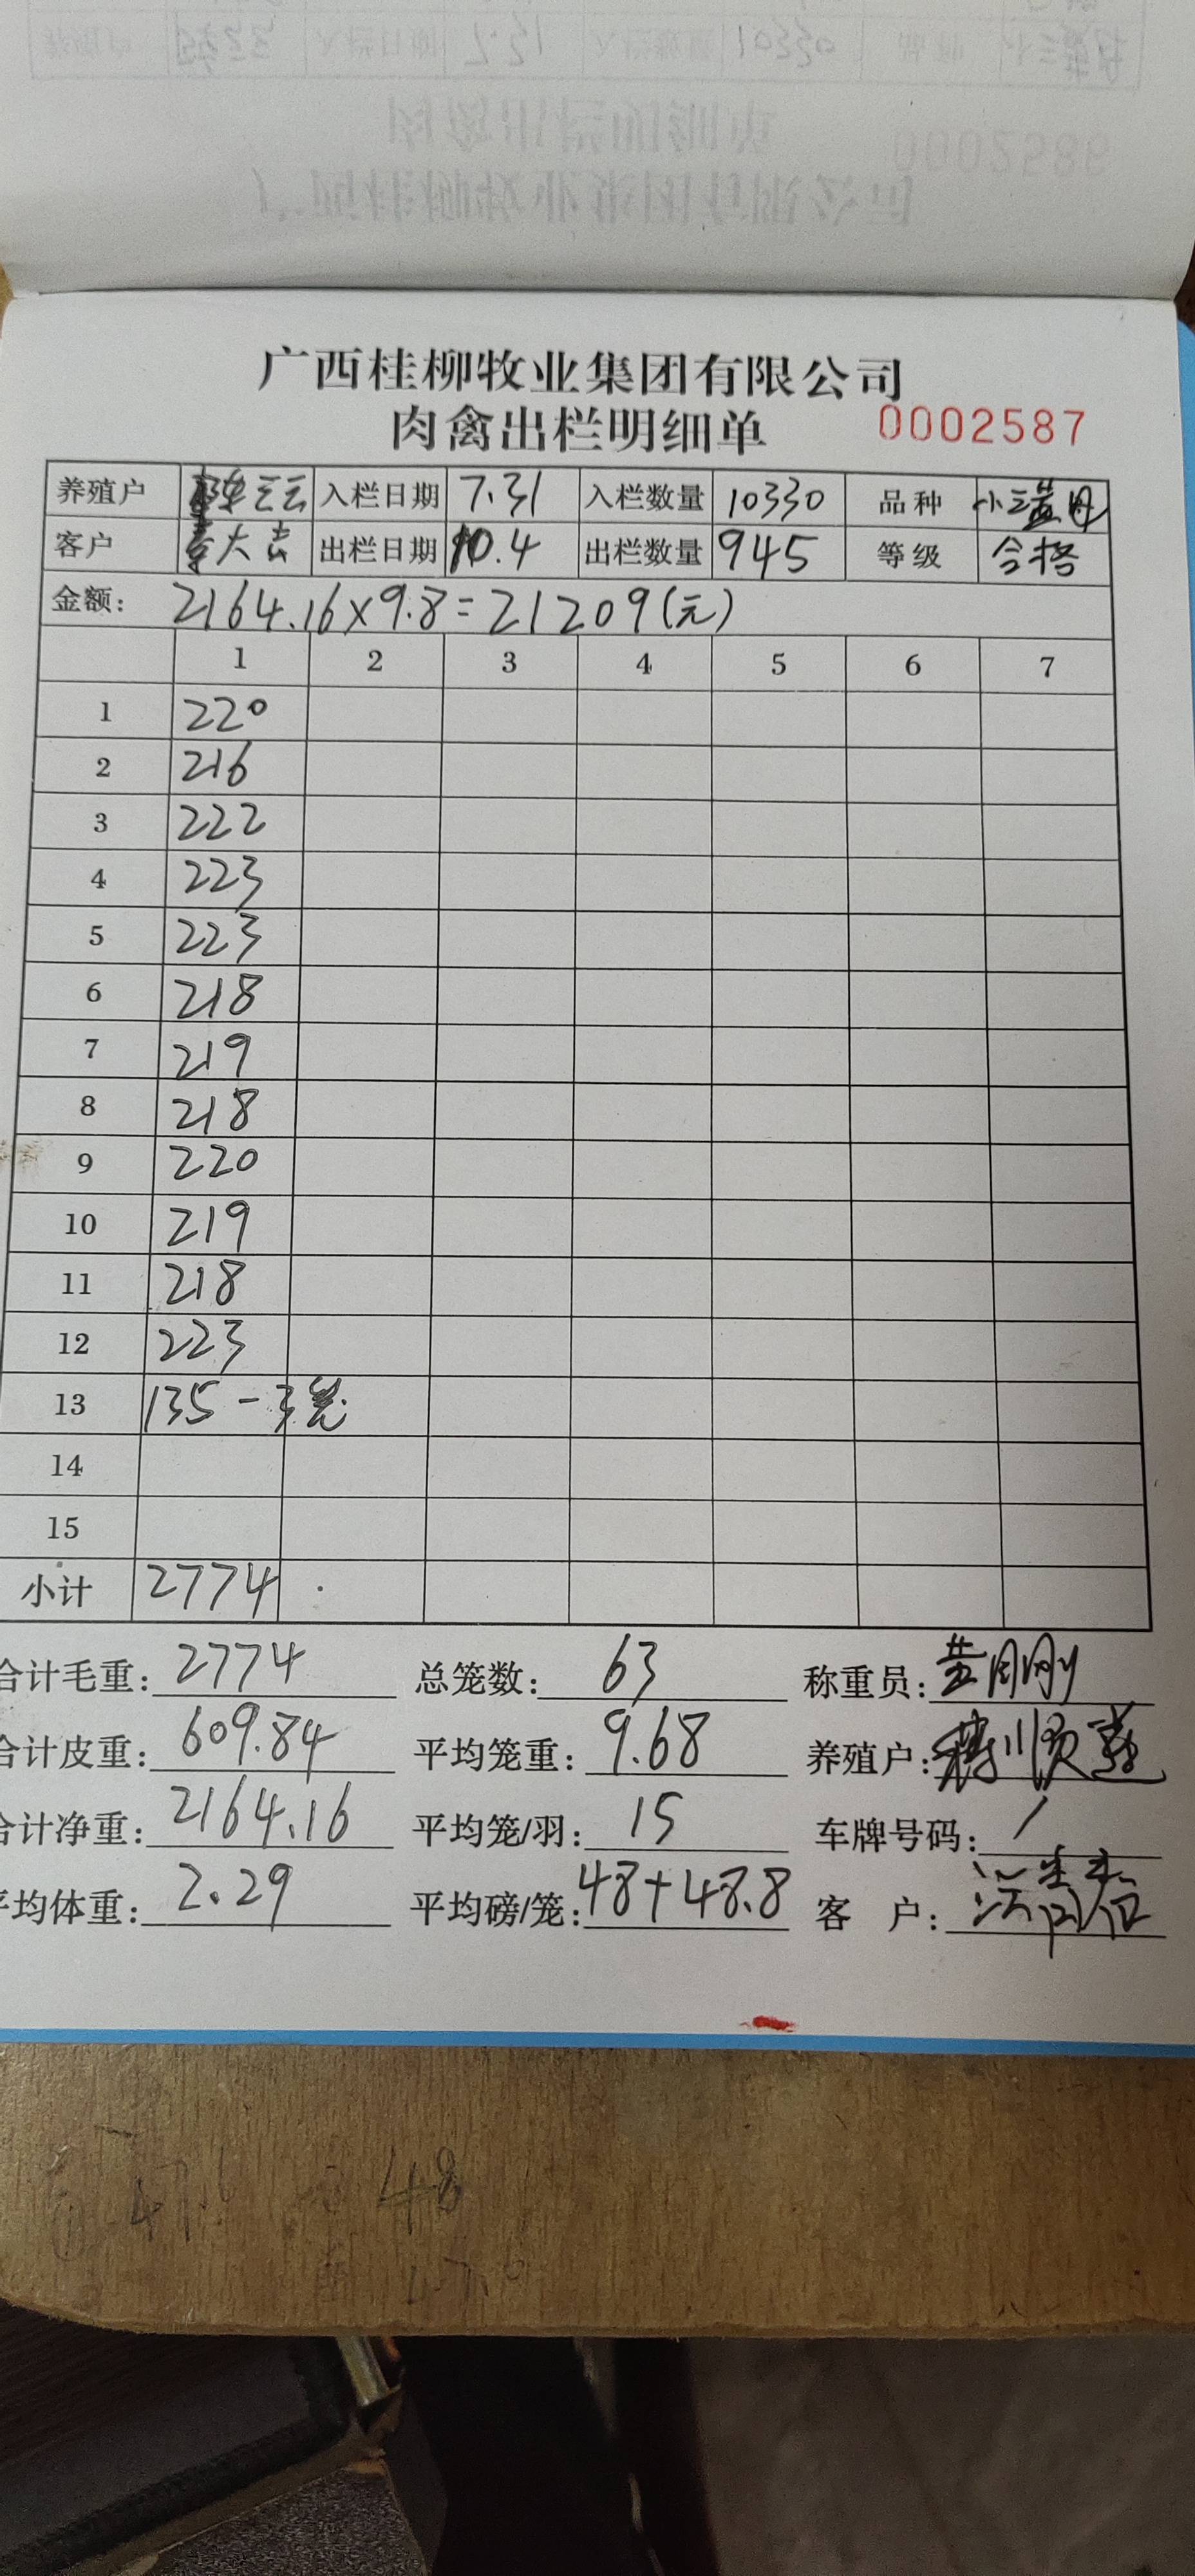 广西桂柳牧业集团有限公司
肉禽出栏明细单 0002587
养殖户 入栏日期 7.31 入栏数量 10330 品种
客户 李大吉 出栏日期 10.4 出栏数量 945 等级 合格
金额: 2164.16×9.8=21209(元)
1 2 3 4 5 6 7
1 220
2 216
3 222
4 223
5 223
6 218
7 219
8 218
9 220
10 219
11 218
12 223
13 135-3笼
14
15
小计 2774
合计毛重: 2774 总笼数: 63 称重员: 黄刚刚
合计皮重: 609.84 平均笼重: 9.68 养殖户:
合计净重: 2164.16 平均笼/羽: 15 车牌号码: /
平均体重: 2.29 平均磅/笼: 48+48.8 客 户:
48